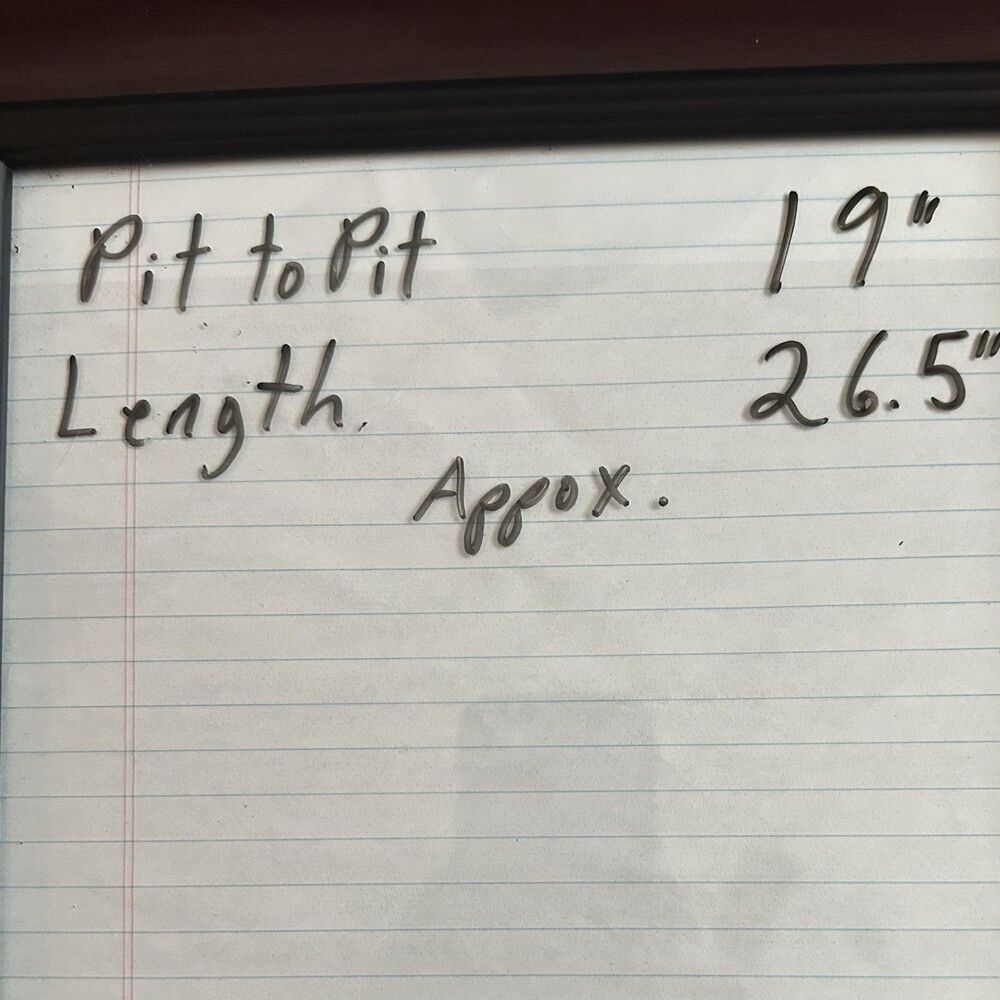 Pit to Pit 19"
Length. 26.5"
Appox.